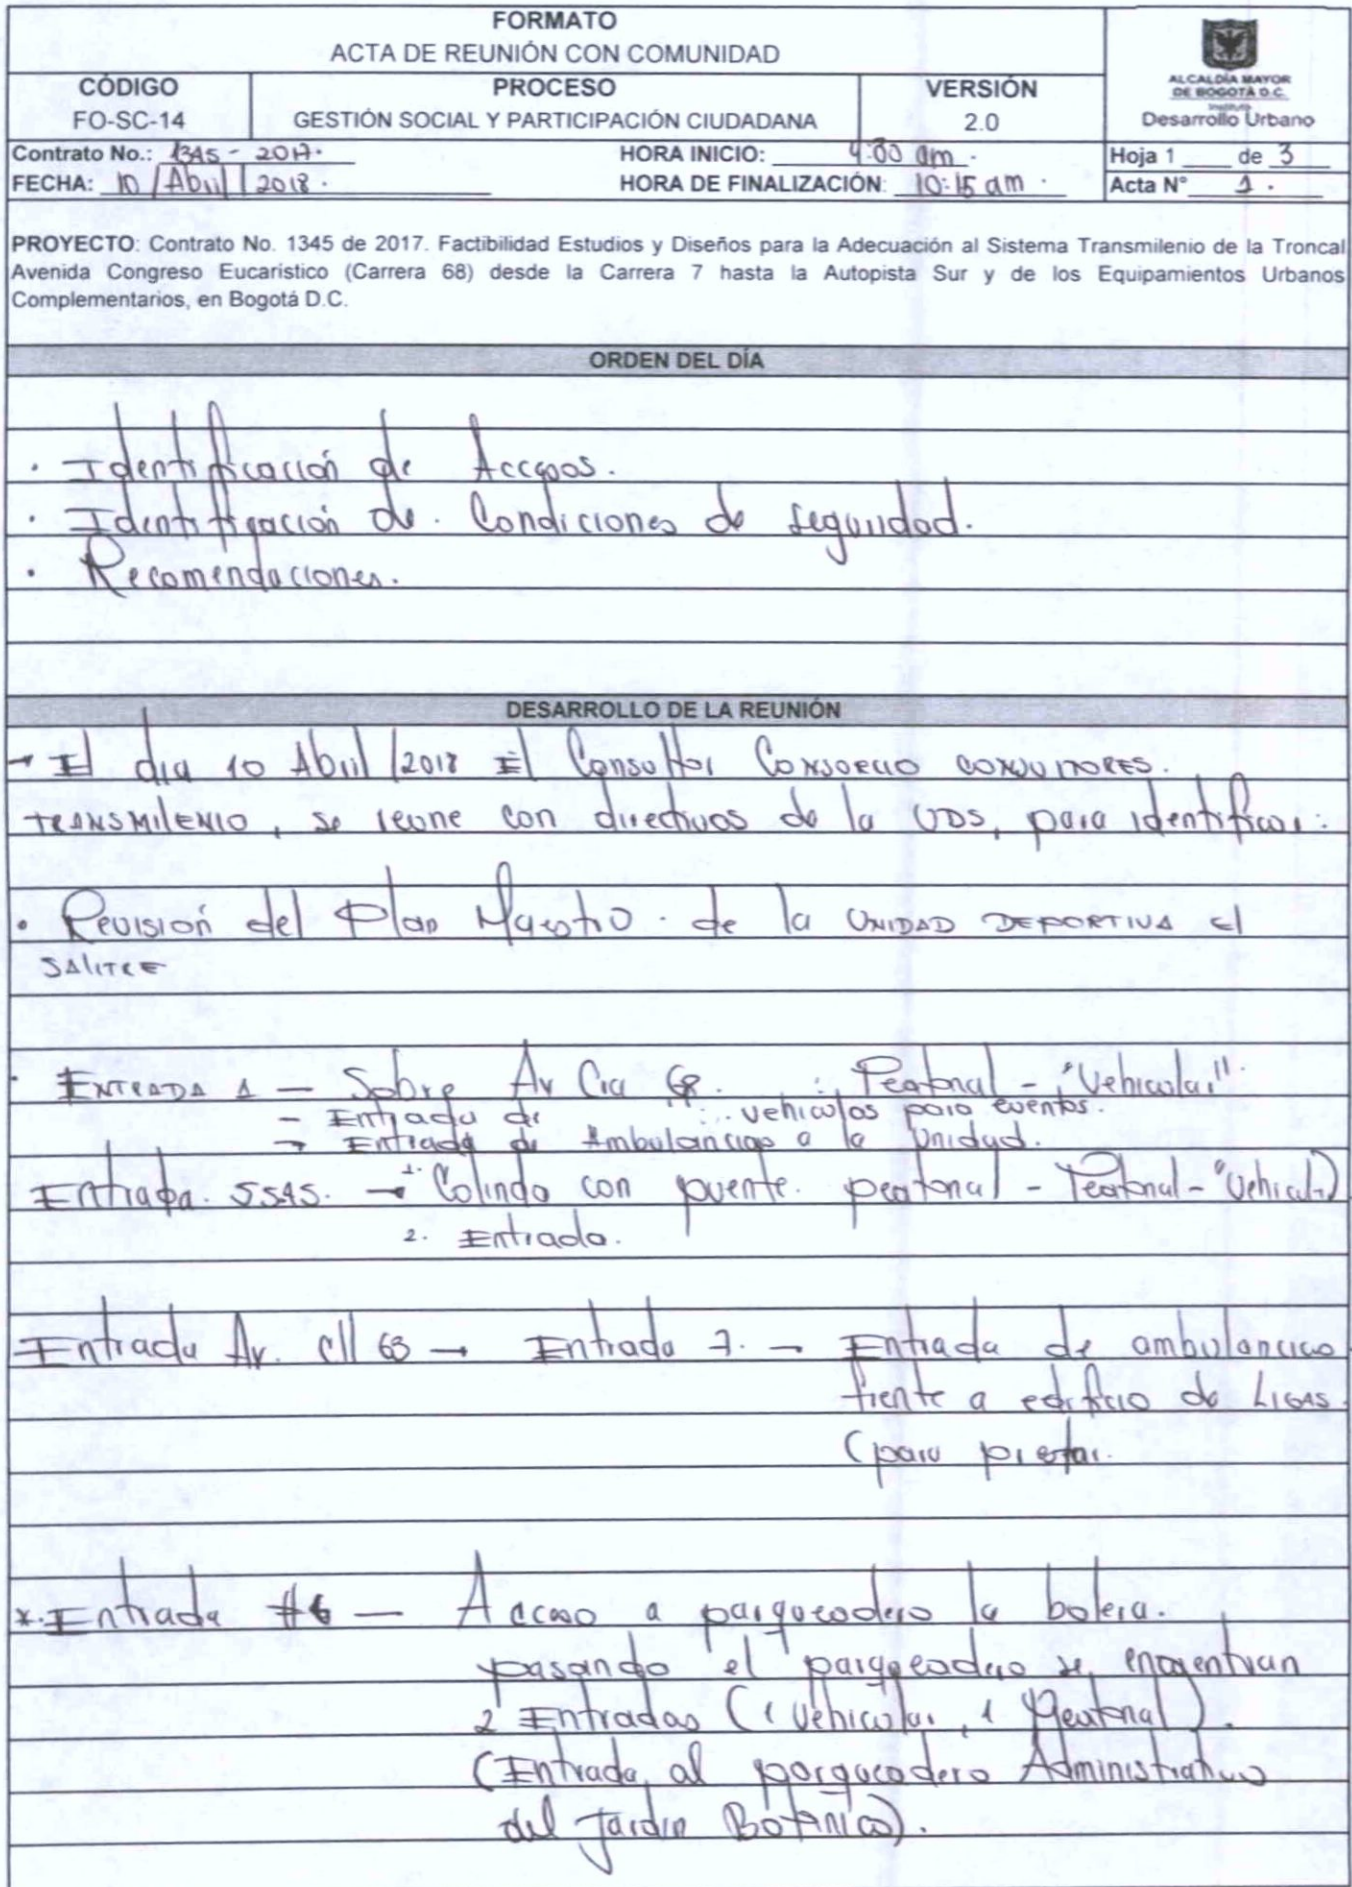 FORMATO
ACTA DE REUNIÓN CON COMUNIDAD
CÓDIGO
FO-SC-14
PROCESO
GESTIÓN SOCIAL Y PARTICIPACIÓN CIUDADANA
VERSIÓN
2.0
ALCALDÍA MAYOR
DE BOGOTÁ D.C.
Instituto
Desarrollo Urbano
Contrato No.: 1345 - 2017.
HORA INICIO: 9:00 am.
Hoja 1 de 3
FECHA: 10 / Abril / 2018.
HORA DE FINALIZACIÓN: 10:15 am.
Acta N° 1.
PROYECTO: Contrato No. 1345 de 2017. Factibilidad Estudios y Diseños para la Adecuación al Sistema Transmilenio de la Troncal
Avenida Congreso Eucarístico (Carrera 68) desde la Carrera 7 hasta la Autopista Sur y de los Equipamientos Urbanos
Complementarios, en Bogotá D.C.
ORDEN DEL DÍA
· Identificación de Accesos.
· Identificación de Condiciones de seguridad.
· Recomendaciones.
DESARROLLO DE LA REUNIÓN
→ El dia 10 Abril /2018 El Consultor Consorcio
TRANSMILENIO, se reune con directivos de la UDS, para identificar:
· Revisión del Plan Maestro de la UNIDAD DEPORTIVA El
SALITRE
· ENTRADA 1 — Sobre Av Cra 68. : Peatonal - "Vehicular".
- Entrada de vehiculos para eventos.
→ Entrada de Ambulancias a la Unidad.
Entrada. → 1. Colinda con puente peatonal - Peatonal -
2. Entrada.
Entrada Av. Cll 63 → Entrada 7. — Entrada de ambulancias
frente a edificio de LIGAS.
(para prestar.
*. Entrada #6 — Acceso a parqueadero la bolera.
pasando el parqueadero se encuentran
2 Entradas (1 Vehicular, 1 Peatonal).
(Entrada al parqueadero Administrativo
del Jardin Botánico).